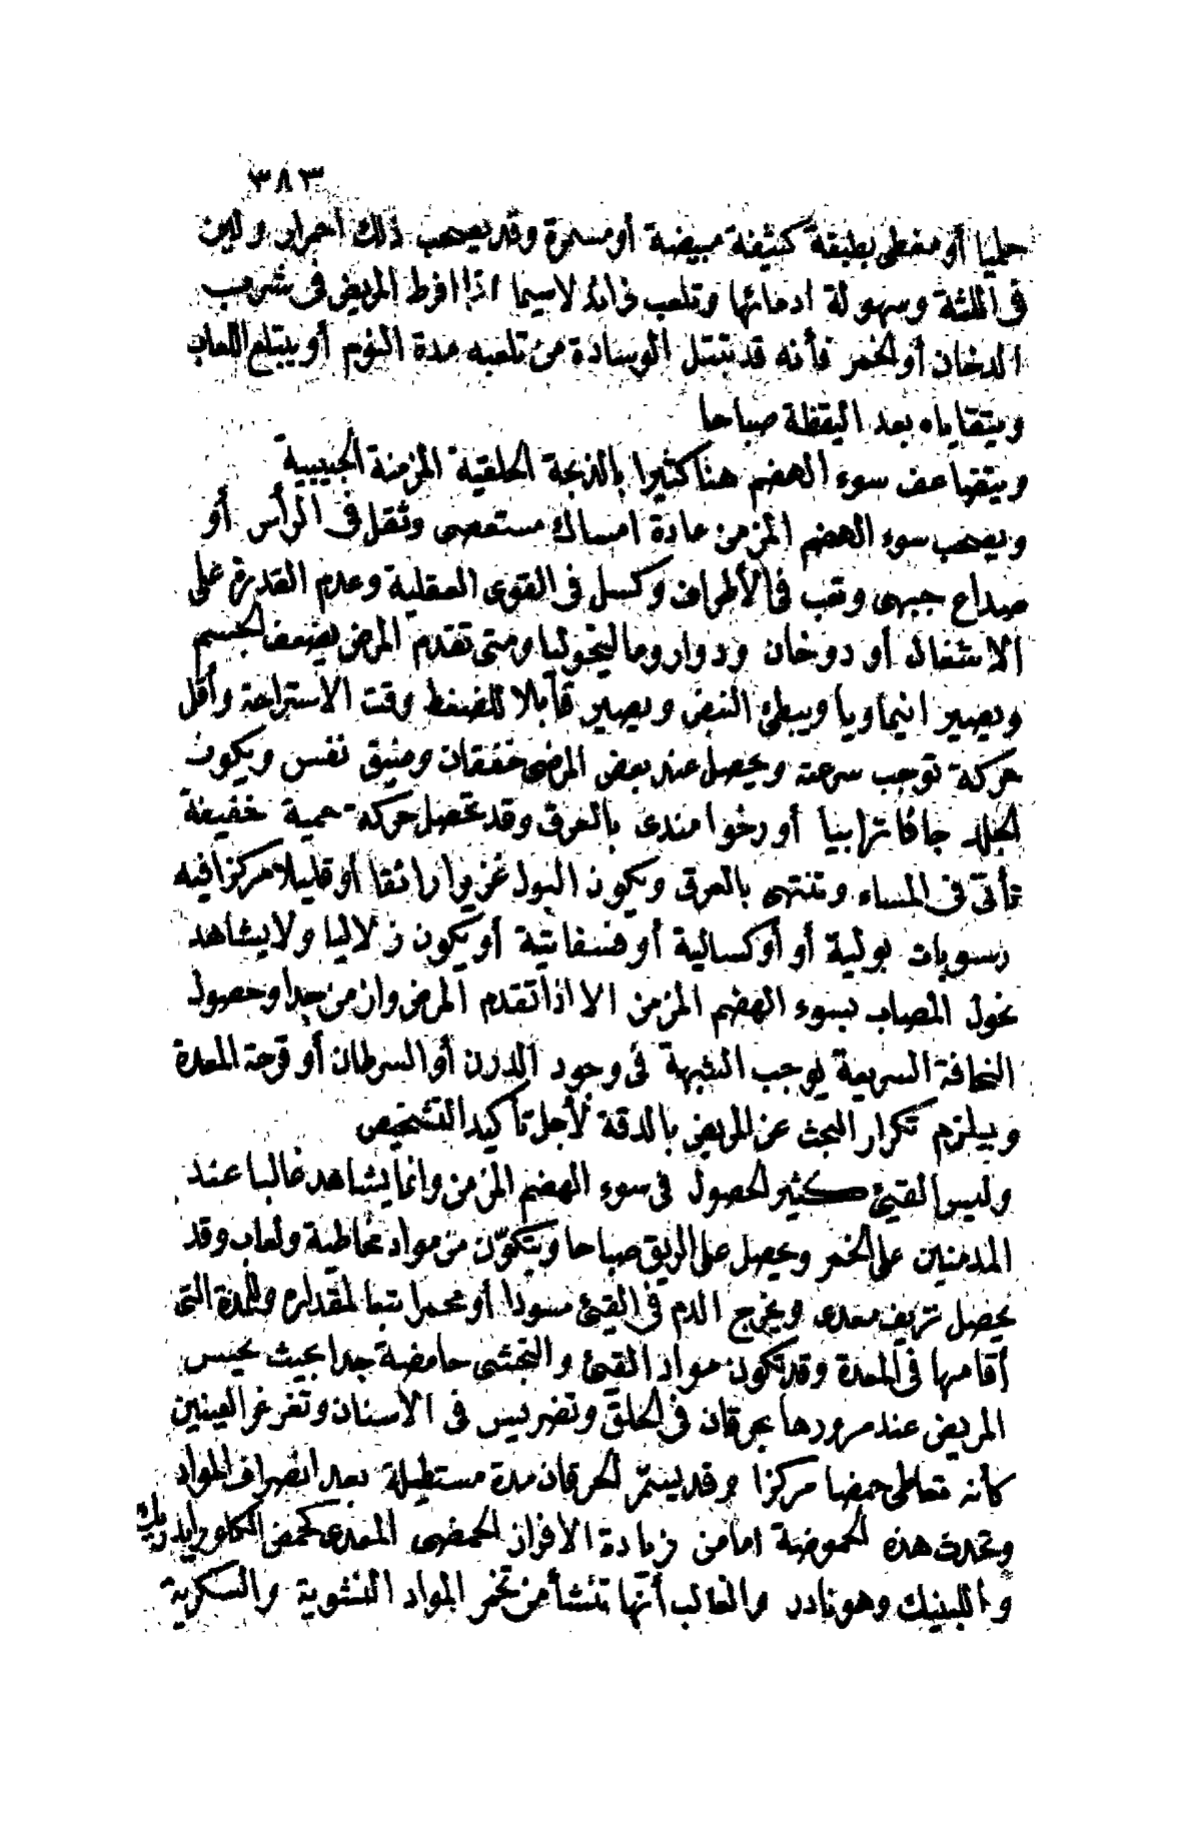 ٣٨٣
حلميا أو مغطى بطبقة كثيفة مبيضة أو مسمرة وقد يصحب ذلك احمرار ولين
فى اللثة وسهولة ادمائها وتلعب زائد لاسيما اذا افرط المريض فى شرب
الدخان أو الخمر فأنه قد تبتل الوسادة من تلعبه مدة النوم أو يبتلع اللعاب
ويتقاياه بعد اليقظة صباحا
ويتضاعف سوء الهضم هنا كثيرا بالذبحة الحلقية المزمنة الحبيبية
ويصحب سوء الهضم المزمن عادة امساك مستعصى وثقل فى الرأس أو
صداع جبهى وتعب فى الأطراف وكسل فى القوى العقلية وعدم القدرة على
الاشتغال أو دوخان ودوار وماليخوليا ومتى تقدم المرض يضعف الجسم
ويصير انيماويا ويبطئ النبض ويصير قابلا للضغط وقت الاستراحة وأقل
حركة توجب سرعته ويحصل عند بعض المرضى خفقان وضيق نفس ويكون
الجلد جافا ترابيا أو رخوا مندى بالعرق وقد تحصل حركة حمية خفيفة
تأتى فى المساء وتنتهى بالعرق ويكون البول غزيرا رائقا أو قليلا مركزا فيه
رسوبات بولية أو أوكسالية أو فسفاتية أو يكون زلاليا ولا يشاهد
نحول المصاب بسوء الهضم المزمن الا اذا تقدم المرض وازمن جدا وحصول
النحافة السريعة يوجب الشبهة فى وجود الدرن أو السرطان أو قرحة المعدة
ويلزم تكرار البحث عن المريض بالدقة لأجل تأكيد التشخيص
وليس القيئ كثير الحصول فى سوء الهضم المزمن وانما يشاهد غالبا عند
المدمنين على الخمر ويحصل على الريق صباحا ويتكوّن من مواد مخاطية ولعاب وقد
يحصل نزيف معدى ويخرج الدم فى القيئ مسودا أو محمرا تبعا لمقداره وللمدة التى
أقامها فى المعدة وقد تكون مواد القيئ والتجشى حامضة جدا بحيث يحس
المريض عند مرورها بحرقان فى الحلق وتضريس فى الأسنان وتغرغر العينين
كأنه تعاطى حمضا مركزا وقد يستمر الحرقان مدة مستطيلة بعد انصراف المواد
وتحدث هذه الحموضة اما من زيادة الافراز الحمضى المعدى كحمض الكلورايدريك
واللبنيك وهو نادر والغالب أنها تنشأ من تخمر المواد النشوية والسكرية